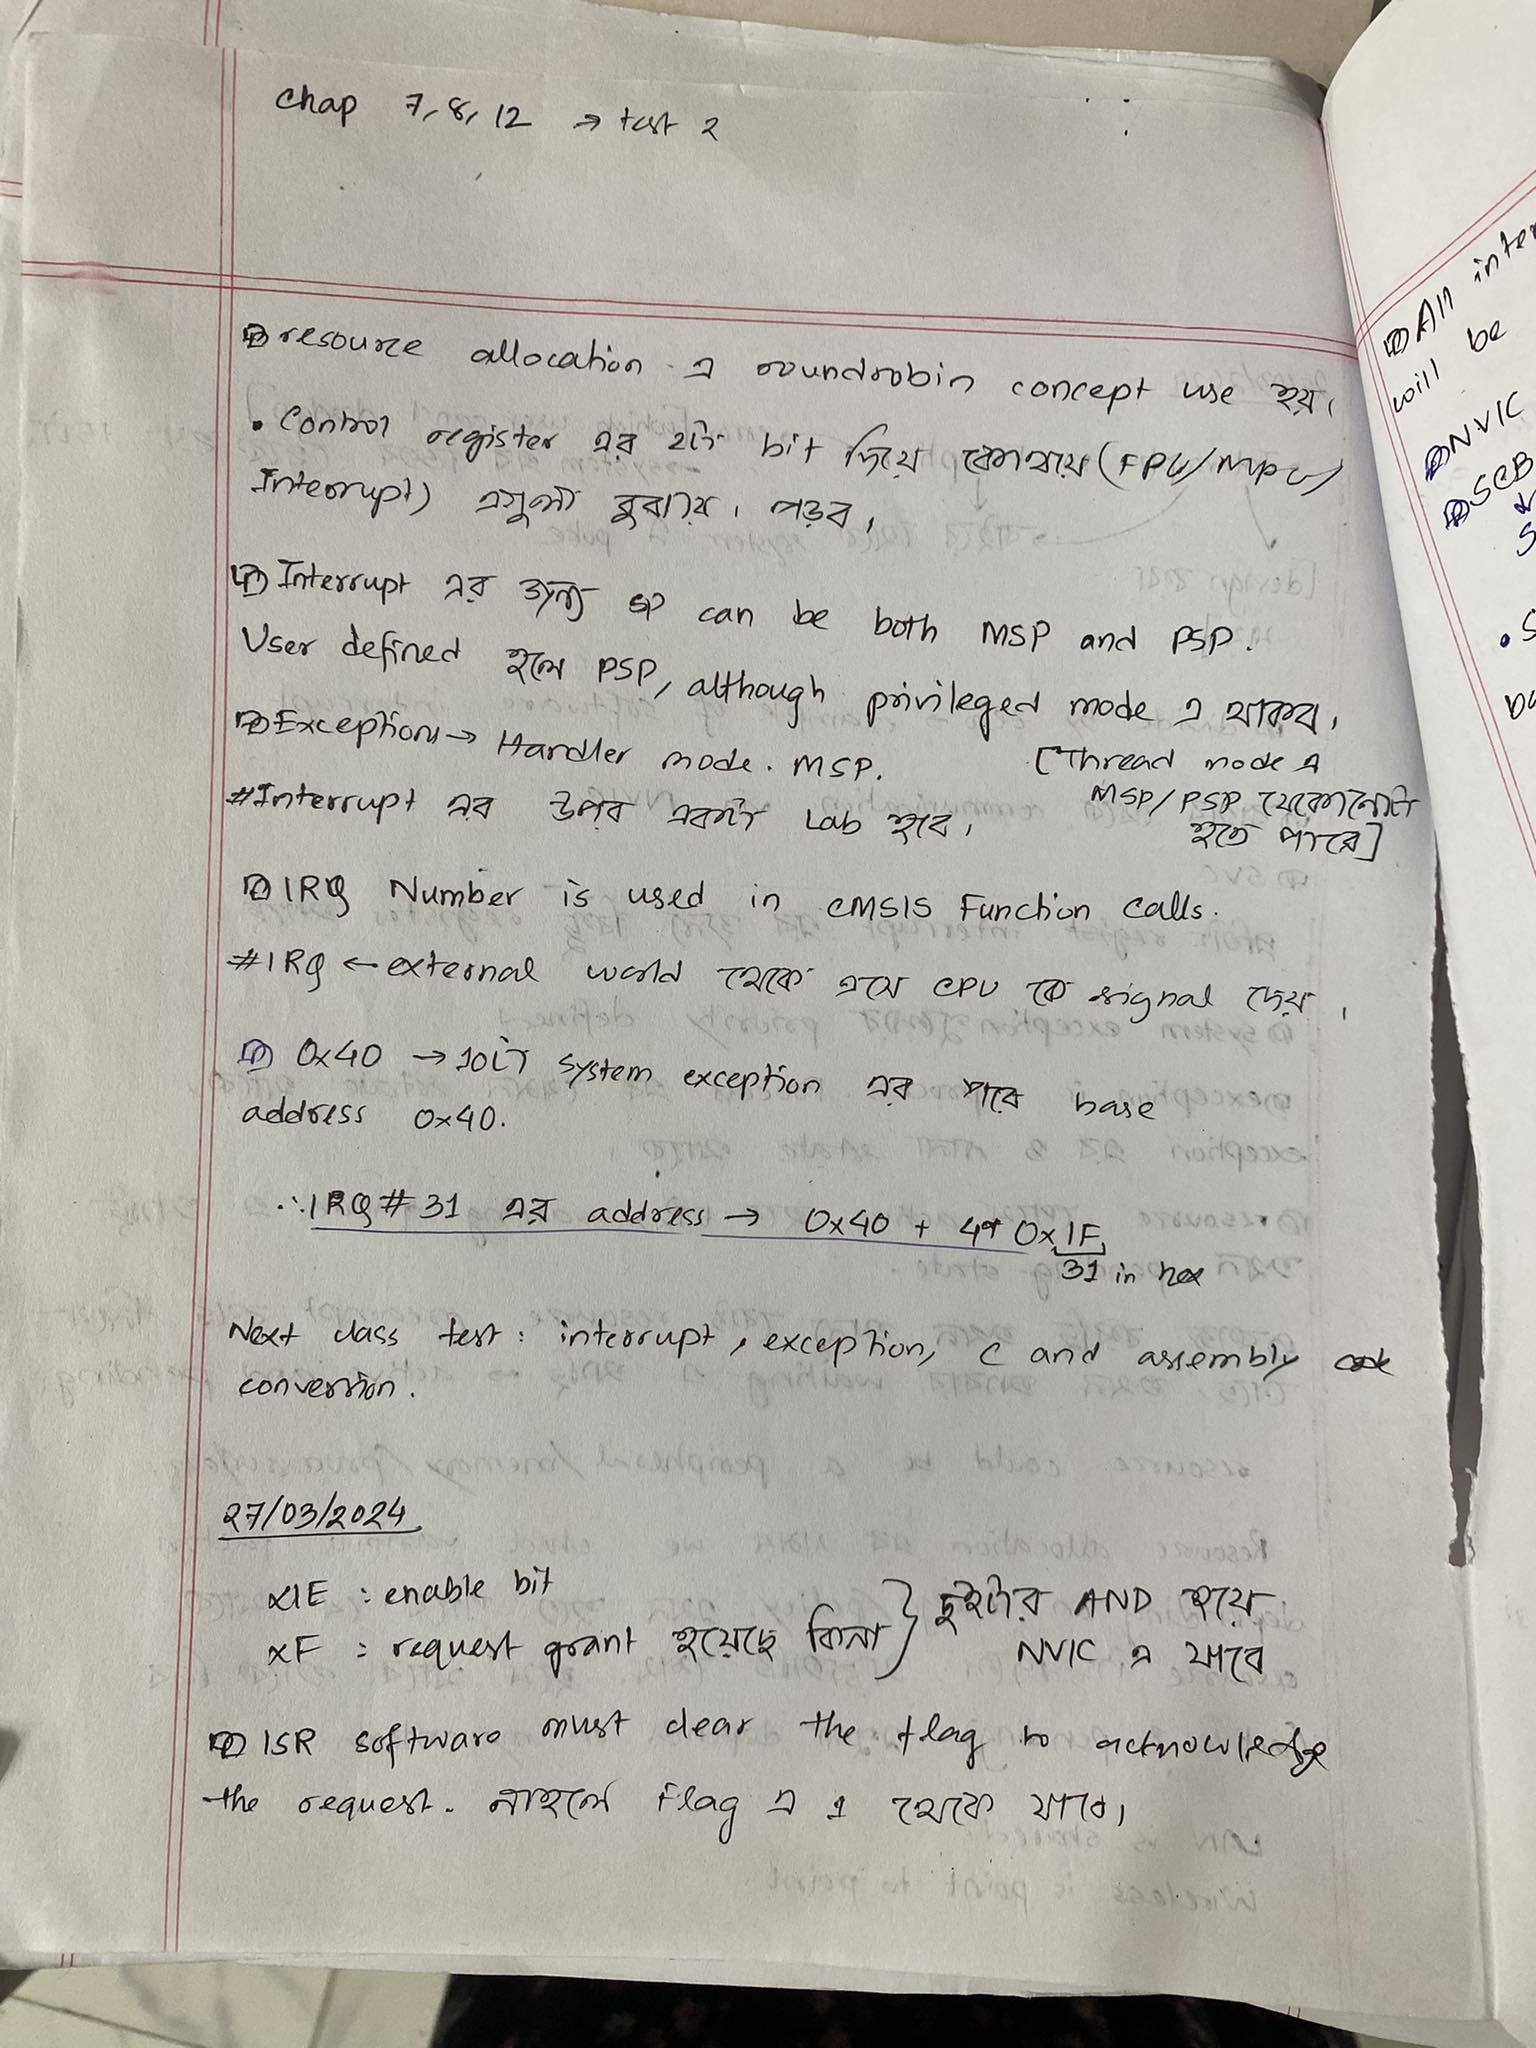 Chap 7, 8, 12 → test 2
resource allocation এ roundrobin concept use হয়।
• Control register এর ২টা bit দিয়ে কোথায় (FPU/MPU/
Interrupt) এগুলা বুঝায়। পড়ব।
Interrupt এর জন্য SP can be both MSP and PSP.
User defined হলে PSP, although privileged mode এ থাকব।
Exceptions → Handler mode. MSP.
[Thread mode এ
MSP/PSP যেকোনোটা
হতে পারে]
#Interrupt এর উপর একটা Lab হবে।
IRQ Number is used in CMSIS Function calls.
#IRQ ← external world থেকে এসে CPU কে signal দেয়।
0x40 → 10টা system exception এর পরে base
address 0x40.
∴ IRQ# 31 এর address → 0x40 + 4* 0x1F
31 in hex
Next class test: interrupt, exception, C and assembly
conversion.
27/03/2024
xIE : enable bit
xF : request grant হয়েছে কিনা } দুইটার AND হয়ে
NVIC এ যাবে
ISR software must clear the flag to acknowledge
the request. নাহলে Flag এ 1 থেকে যাবে।
All inter
will be
NVIC
SCB